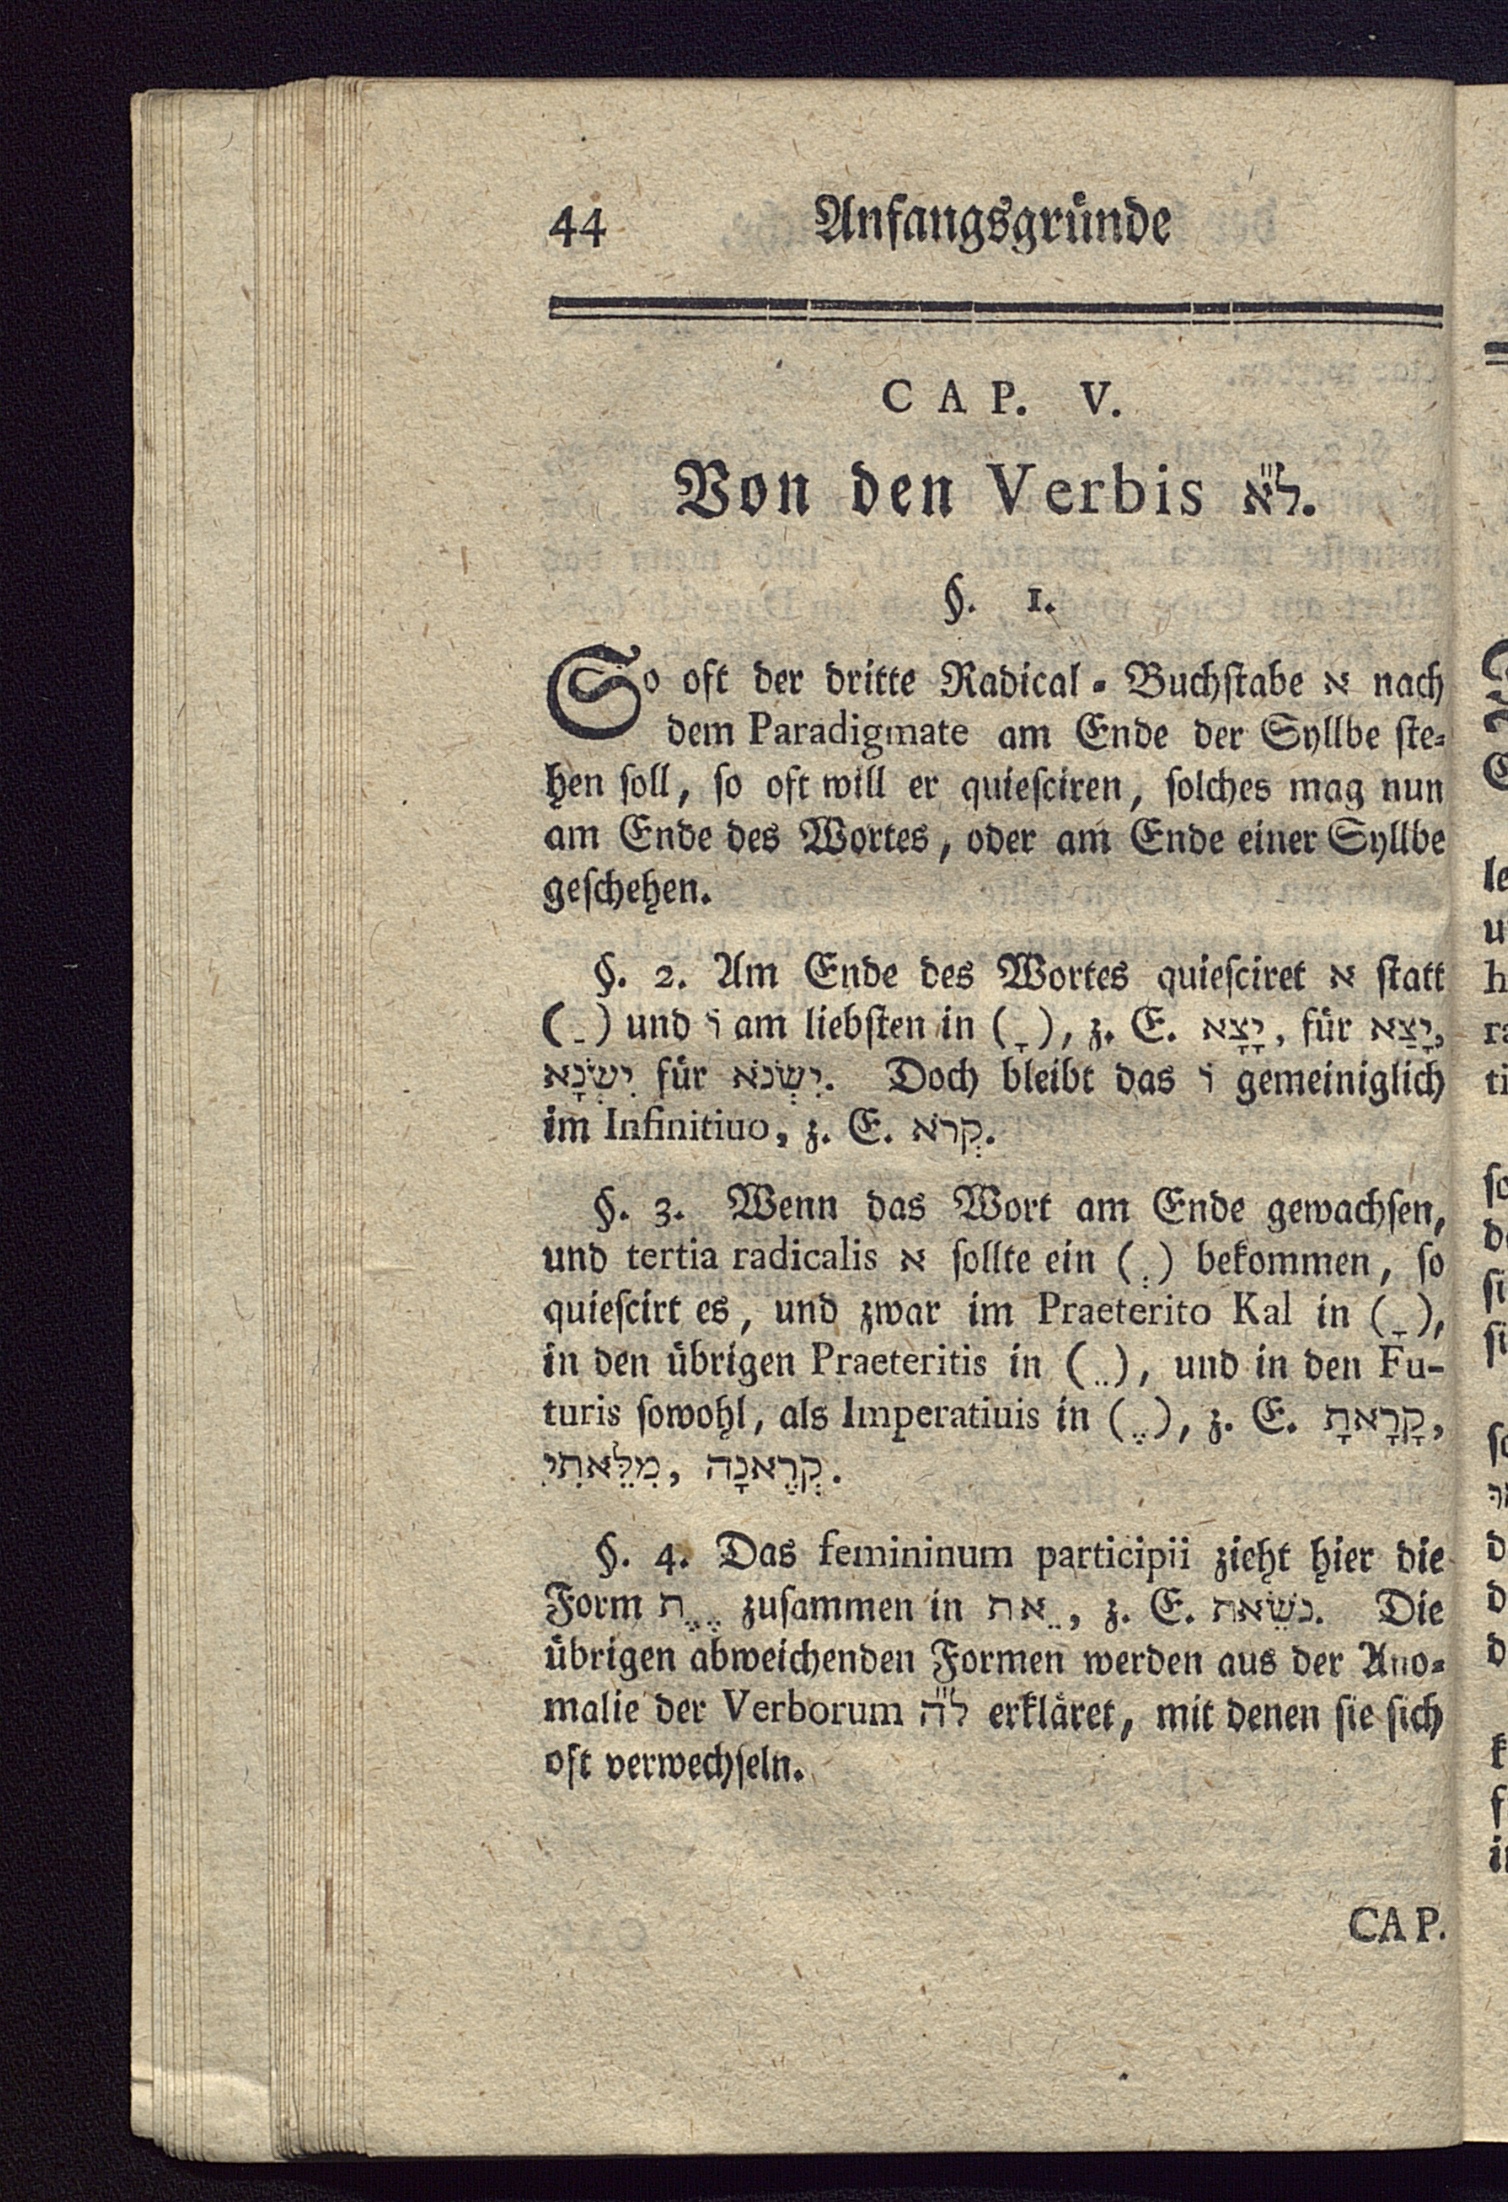 44 Anfangsgründe
CAP. V.
Von den Verbis ל״א.
§. 1.
So oft der dritte Radical-Buchstabe א nach
dem Paradigmate am Ende der Syllbe ste-
hen soll, so oft will er quiesciren, solches mag nun
am Ende des Wortes, oder am Ende einer Syllbe
geschehen.
§. 2. Am Ende des Wortes quiesciret א statt
( ַ ) und וֹ am liebsten in ( ָ ), z. E. יָצָא, für יָצַא,
יִשְׂנָא für יִשְׂנֹא. Doch bleibt das וֹ gemeiniglich
im Infinitiuo, z. E. קְרֹא.
§. 3. Wenn das Wort am Ende gewachsen,
und tertia radicalis א sollte ein ( ְ ) bekommen, so
quiescirt es, und zwar im Praeterito Kal in ( ָ ),
in den übrigen Praeteritis in ( ֵ ), und in den Fu-
turis sowohl, als Imperatiuis in ( ֶ ), z. E. קָרָאתָ,
מִלֵּאתִי, קְרֶאנָה.
§. 4. Das femininum participii zieht hier die
Form ֶ ֶת zusammen in ֵאת, z. E. נֹשֵׂאת. Die
übrigen abweichenden Formen werden aus der Ano-
malie der Verborum ל״ה erkläret, mit denen sie sich
oft verwechseln.
CAP.